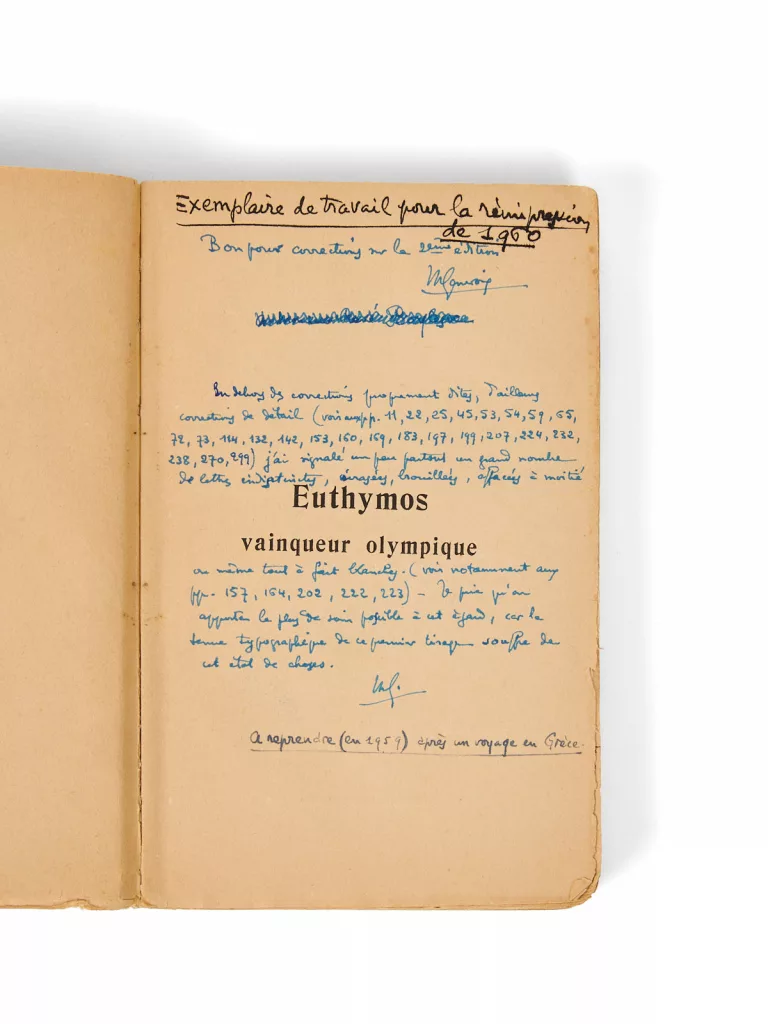 Exemplaire de travail pour la réimpression
de 1960
Bon pour corrections sur la 2ème édition
MGenevoix
En dehors des corrections proprement dites, d'ailleurs
corrections de détail (voir aux pp. 11, 22, 25, 45, 53, 54, 59, 65,
72, 73, 114, 132, 142, 153, 160, 169, 183, 197, 199, 207, 224, 232,
238, 270, 299) j'ai signalé un peu partout un grand nombre
de lettres indistinctes, écrasées, brouillées, effacées à moitié
Euthymos
vainqueur olympique
ou même tout à fait blanches. (voir notamment aux
pp. 157, 164, 202, 222, 223) – Je prie qu'on
apporte le plus de soin possible à cet égard, car la
tenue typographique de ce premier tirage souffre de
cet état de choses.
MG.
A reprendre (en 1959) après un voyage en Grèce.